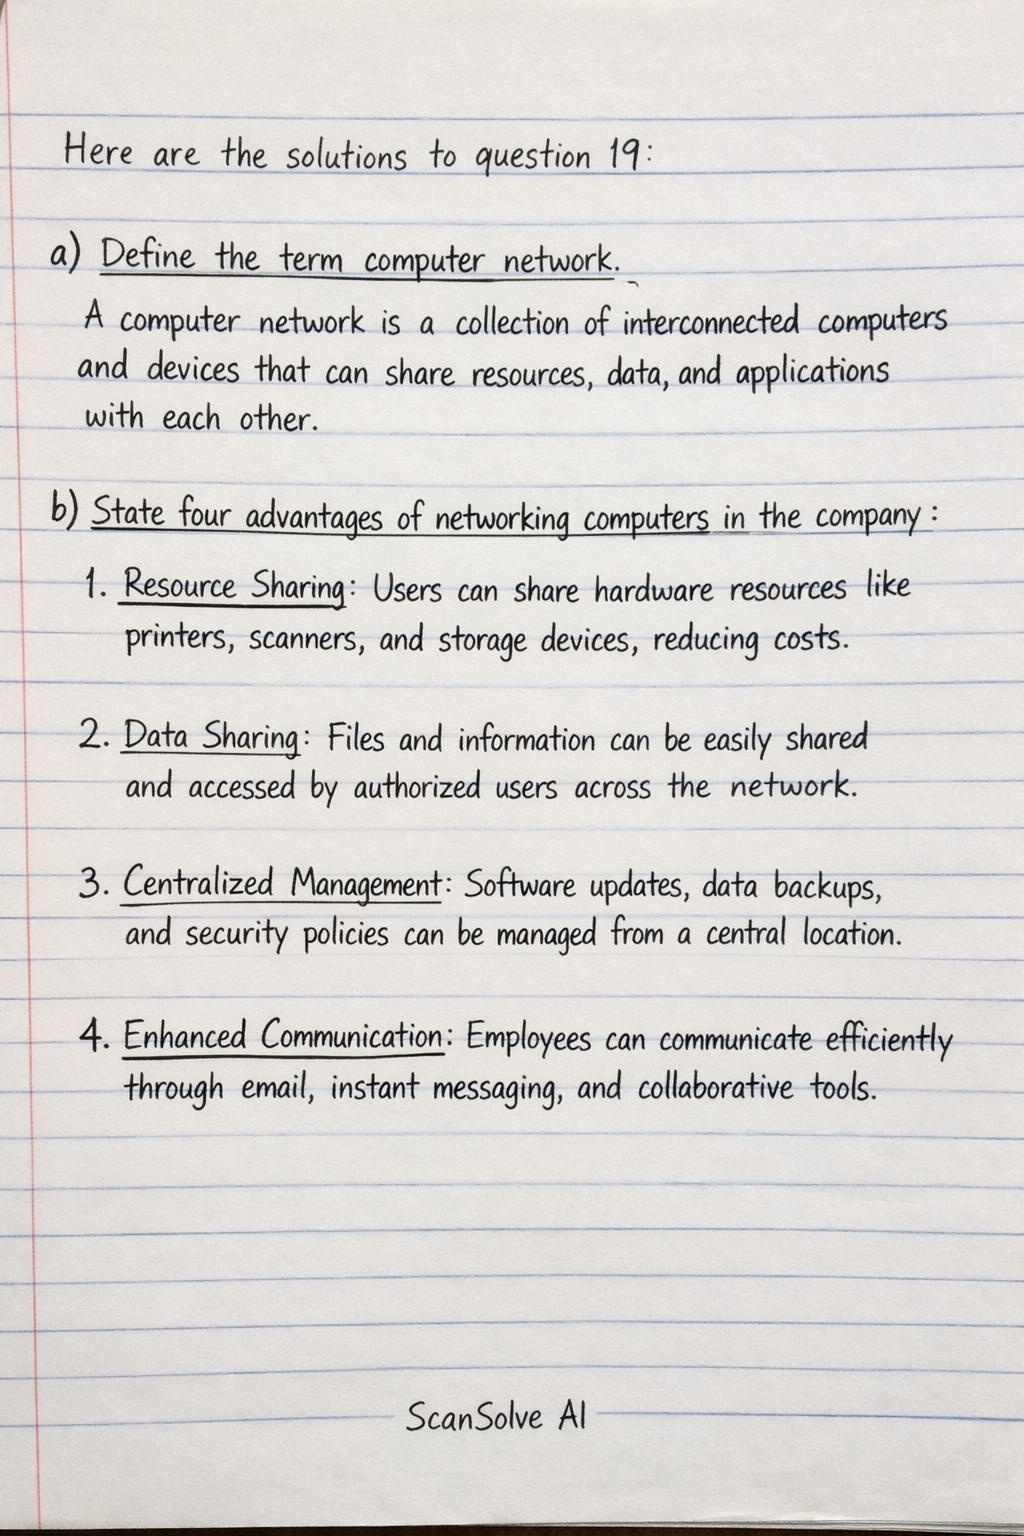 Here are the solutions to question 19:
a) Define the term computer network.
A computer network is a collection of interconnected computers
and devices that can share resources, data, and applications
with each other.
b) State four advantages of networking computers in the company:
1. Resource Sharing: Users can share hardware resources like
printers, scanners, and storage devices, reducing costs.
2. Data Sharing: Files and information can be easily shared
and accessed by authorized users across the network.
3. Centralized Management: Software updates, data backups,
and security policies can be managed from a central location.
4. Enhanced Communication: Employees can communicate efficiently
through email, instant messaging, and collaborative tools.
ScanSolve AI